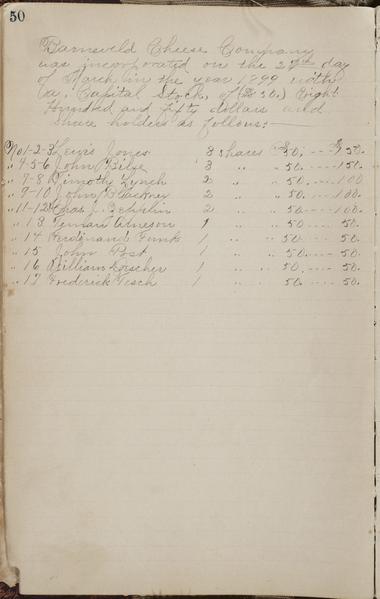 50
Barneveld Cheese Company
was incorporated on the 27th day
of March in the year 1899 with
a Capital Stock, of Eight
Hundred and fifty dollars and
Share holders as follows:—
No 1-2-3 Lewis Jones 3 shares 50. --- 150.
" 4-5-6 John 3 " " 50. --- 150.
" 7-8 Timothy Lynch 2 " " 50. --- 100
" 9-10 John 2 " " 50. --- 100.
" 11-12 Chas. J. 2 " " 50. --- 100
" 13 Arneson 1 " " 50. --- 50
" 14 Ferdinand Funk 1 " " 50. --- 50.
" 15 John Post 1 " " 50. --- 50.
" 16 William 1 " " 50. --- 50.
" 17 Frederick Tesch 1 " " 50. --- 50.